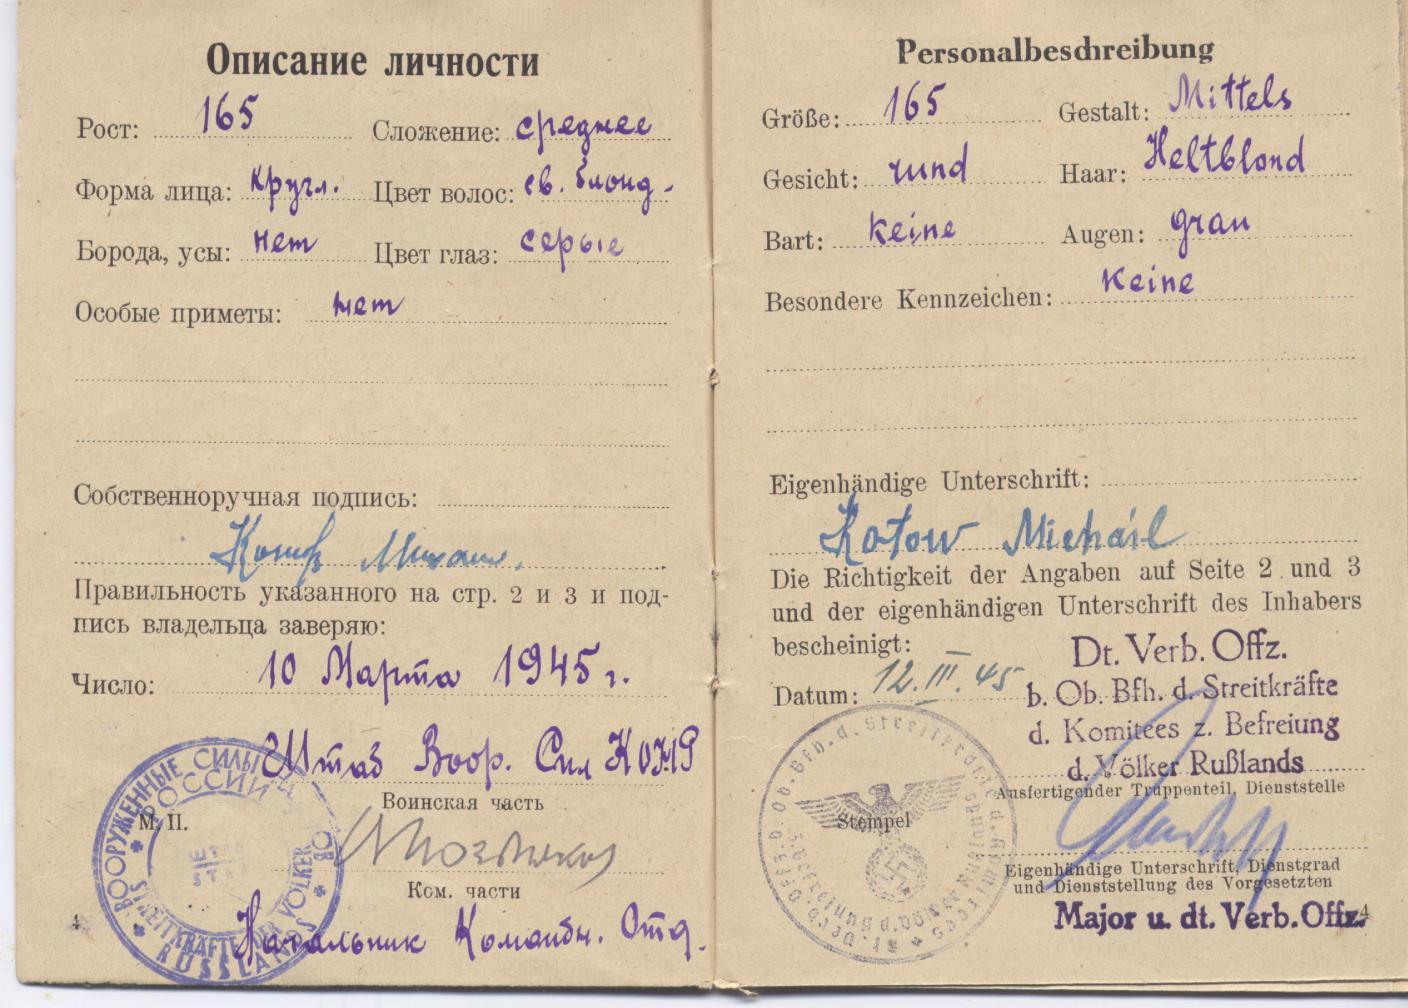 Описание личности
Рост: 165 Сложение: среднее
Форма лица: кругл. Цвет волос: св. блонд.
Борода, усы: нет Цвет глаз: серые
Особые приметы: нет
Собственноручная подпись:
Котов Михаил.
Правильность указанного на стр. 2 и 3 и под-
пись владельца заверяю:
Число: 10 Марта 1945 г.
Штаб Воор. Сил КОНР
Воинская часть
М. П.
Ком. части
Начальник Команდн. Отд.
ВООРУЖЕННЫЕ СИЛЫ НАРОДОВ
РОССИИ
ШТАБ
STAB
STREITKRÄFTE DER VÖLKER
RUSSLANDS
4
Personalbeschreibung
Größe: 165 Gestalt: Mittels
Gesicht: rund Haar: Heltblond
Bart: keine Augen: grau
Besondere Kennzeichen: keine
Eigenhändige Unterschrift:
Kotow Michail
Die Richtigkeit der Angaben auf Seite 2 und 3
und der eigenhändigen Unterschrift des Inhabers
bescheinigt:
Datum: 12. III. 45
Dt. Verb. Offz.
b. Ob. Bfh. d. Streitkräfte
d. Komitees z. Befreiung
d. Völker Rußlands
Ausfertigender Truppenteil, Dienststelle
Stempel
Eigenhändige Unterschrift, Dienstgrad
und Dienststellung des Vorgesetzten
Major u. dt. Verb. Offz.
4